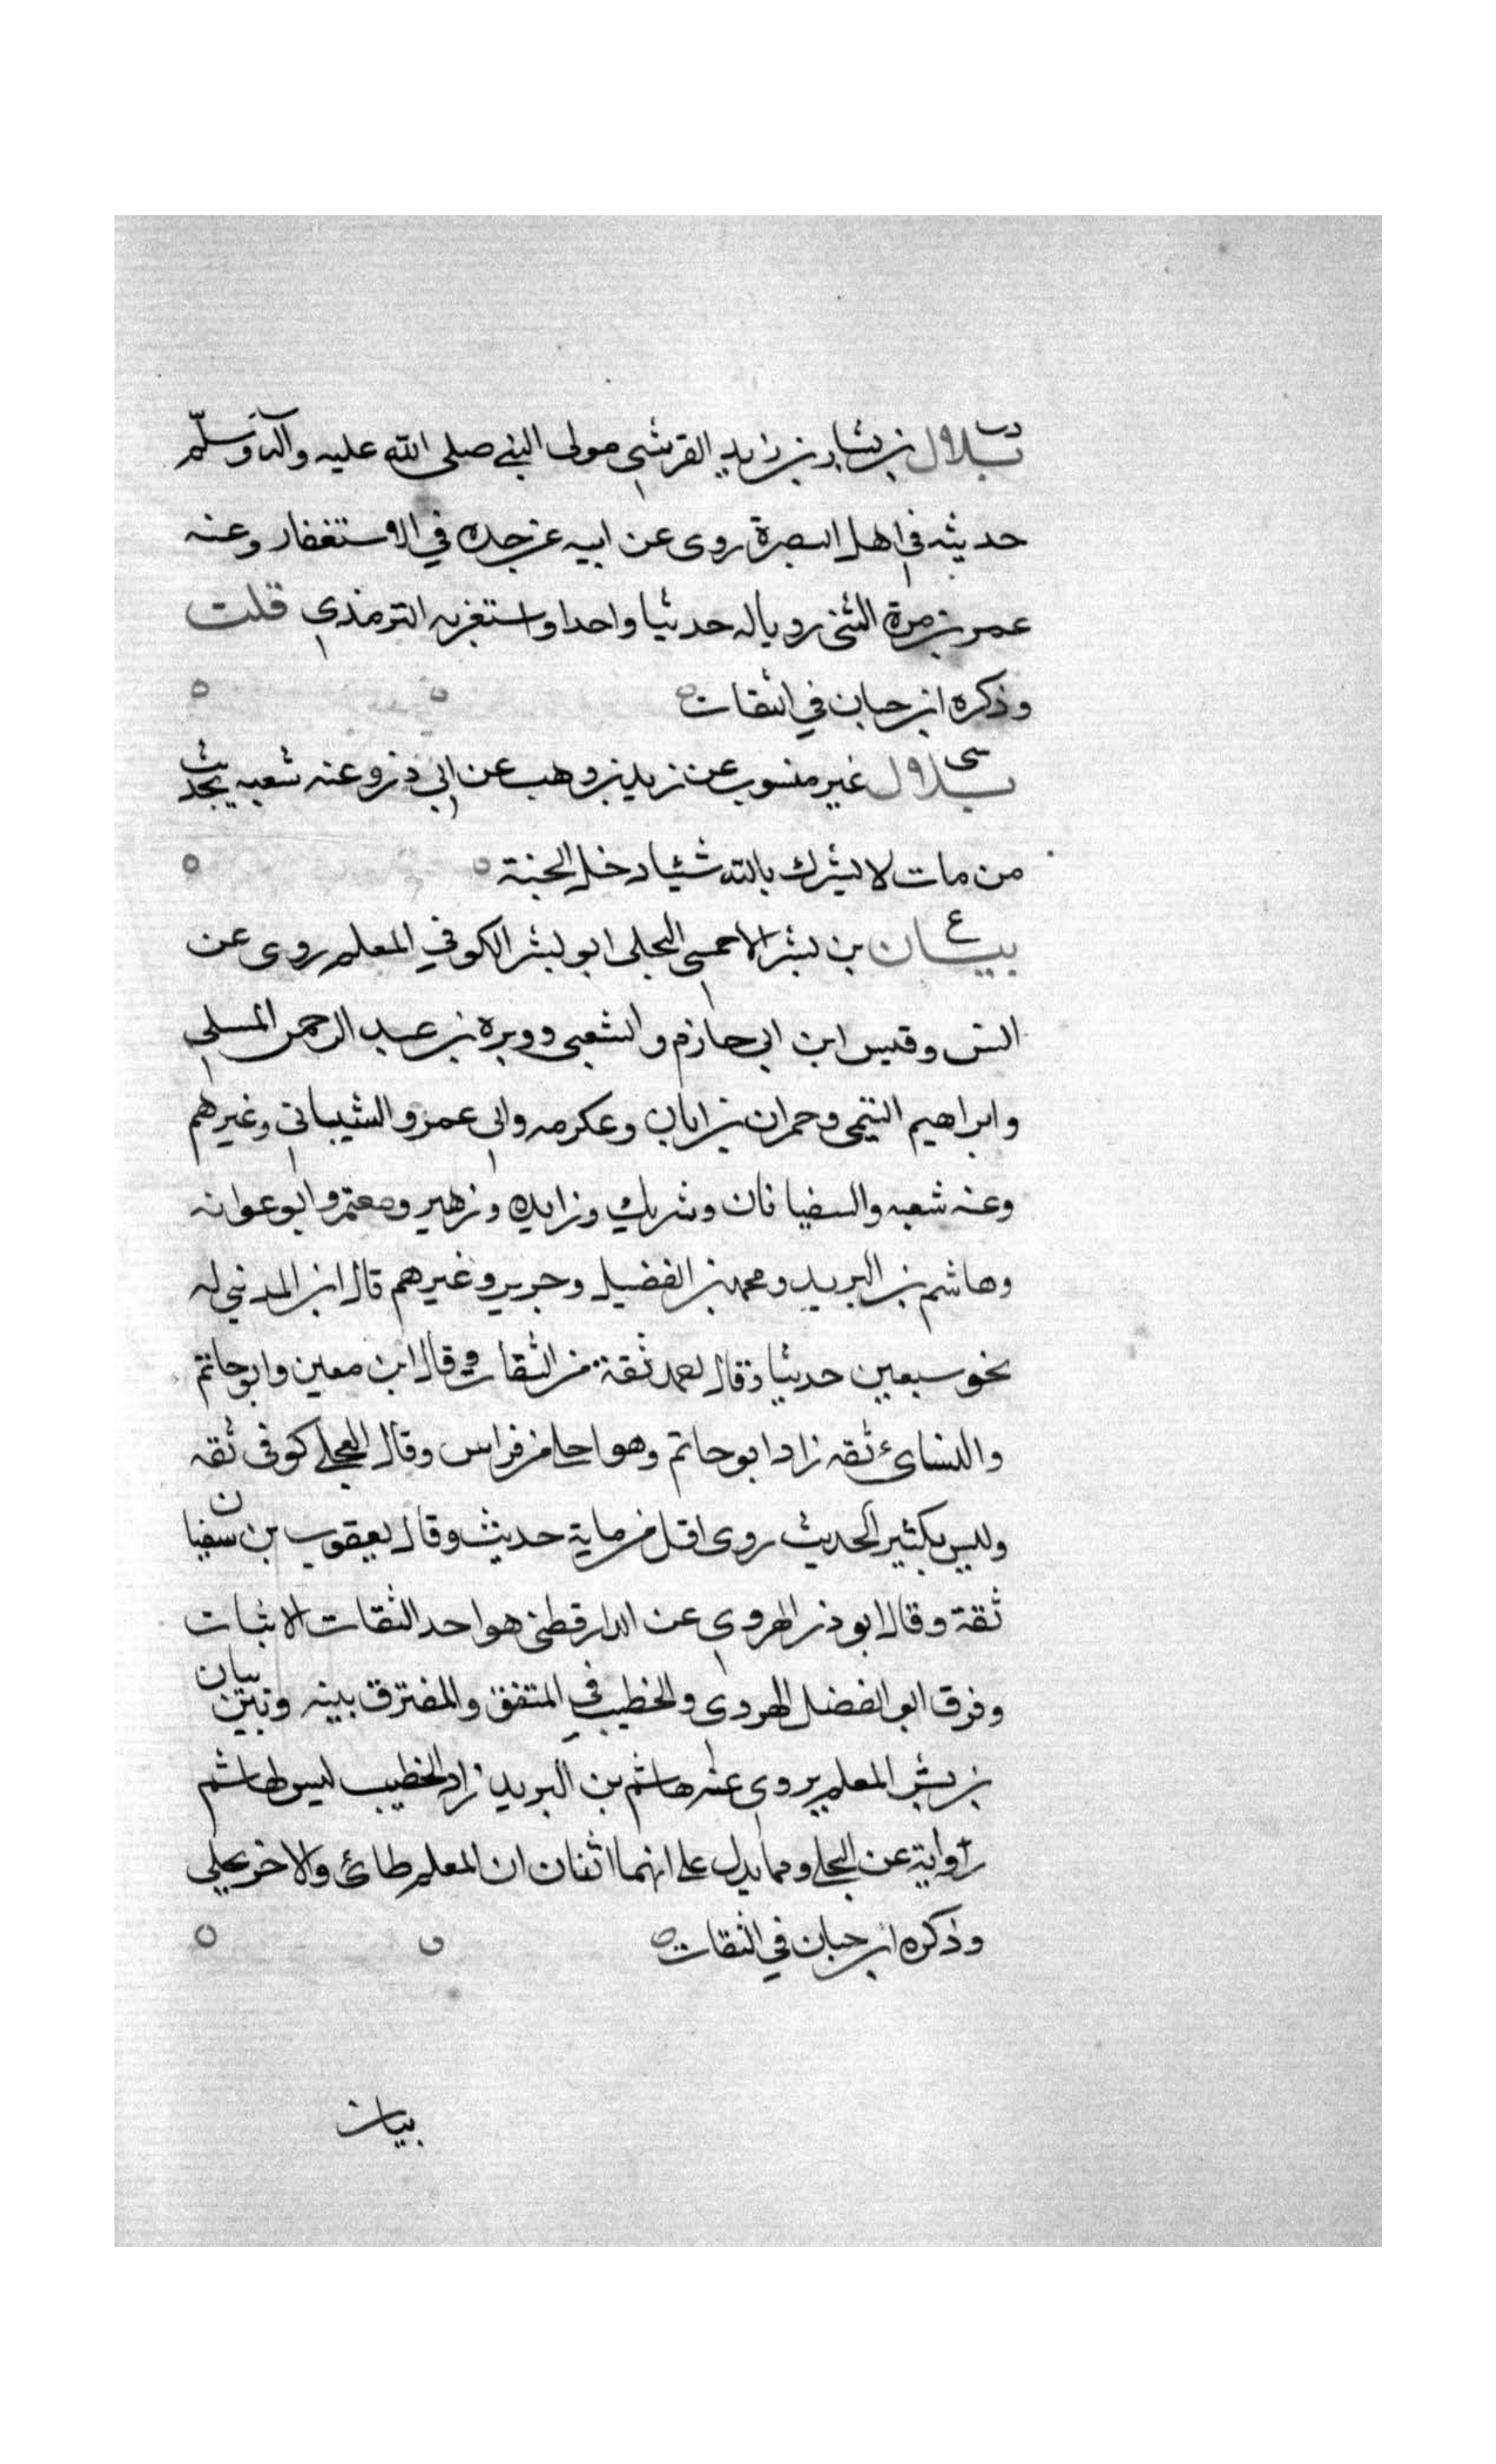 دت
بلال بن يسار بن زايد القرشي مولى النبي صلى الله عليه وآله وسلم
حديثه في اهل البصرة روى عن ابيه عن جده في الاستغفار وعنه
عمر بن مرة الشني رويا له حديثا واحدا واستغربه الترمذي قلت
وذكره ابن حبان في الثقات
سي
بلال غير منسوب عن زيد بن وهب عن ابي ذر وعنه شعبه بحديث
من مات لا يشرك بالله شيئا دخل الجنة
ع
بيان بن بشر الاحمسي البجلي ابو بشر الكوفي المعلم روى عن
انس وقيس ابن ابي حازم والشعبي ووبره بن عبد الرحمن المسلي
وابراهيم التيمي وحمران بن ابان وعكرمه وابي عمرو الشيباني وغيرهم
وعنه شعبه والسفيانان وشريك وزايده وزهير ومعتمر وابو عوانه
وهاشم بن البريد ومحمد بن الفضيل وجرير وغيرهم قال ابن المديني له
نحو سبعين حديثا وقال احمد ثقة من الثقات وقال ابن معين وابو حاتم
والنسائ ثقه زاد ابو حاتم وهو احلى من فراس وقال العجلي كوفي ثقه
وليس بكثير الحديث روى اقل من ماية حديث وقال يعقوب بن سفيان
ثقة وقال ابو ذر الهروي عن الدارقطني هو احد الثقات الاثبات
وفرق ابو الفضل الهروي والخطيب في المتفق والمفترق بينه وبين بيان
بن بشر المعلم يروي عنه هاشم بن البريد زاد الخطيب ليس لهاشم
رواية عن البجلي ومما يدل على انهما اثنان ان المعلم طائ والاخر بجلي
وذكره ابن حبان في الثقات
بيان